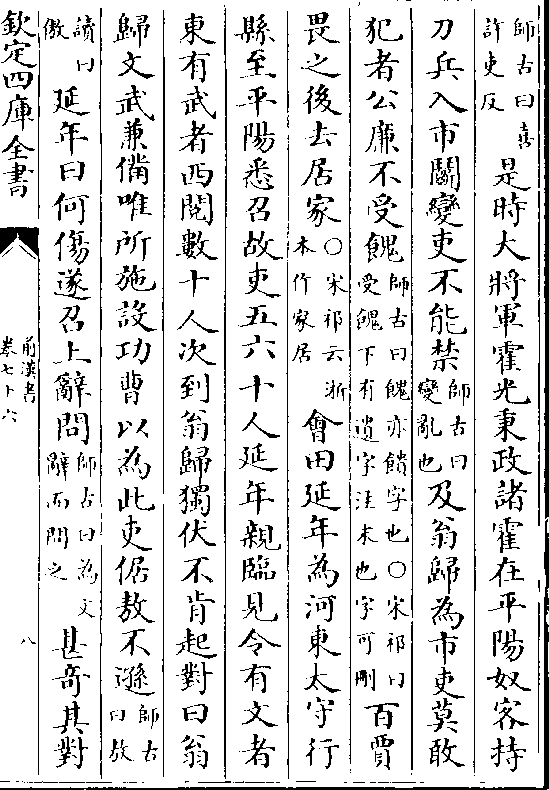 師古曰喜
許吏反
是時大將軍霍光秉政諸霍在平陽奴客持
刀兵入市鬭變吏不能禁
師古曰
變亂也
及翁歸為市吏莫敢
犯者公廉不受餽
師古曰餽亦饋字也○宋祁曰
受餽下有遺字注末也字可刪
百賈
畏之後去居家
○宋祁云浙
本作家居
會田延年為河東太守行
縣至平陽悉召故吏五六十人延年親臨見令有文者
東有武者西閱數十人次到翁歸獨伏不肯起對曰翁
歸文武兼備唯所施設功曹以為此吏倨敖不遜
師古
曰敖
讀曰
傲
延年曰何傷遂召上辭問
師古曰為文
辭而問之
甚奇其對
欽定四庫全書
前漢書
卷七十六
八